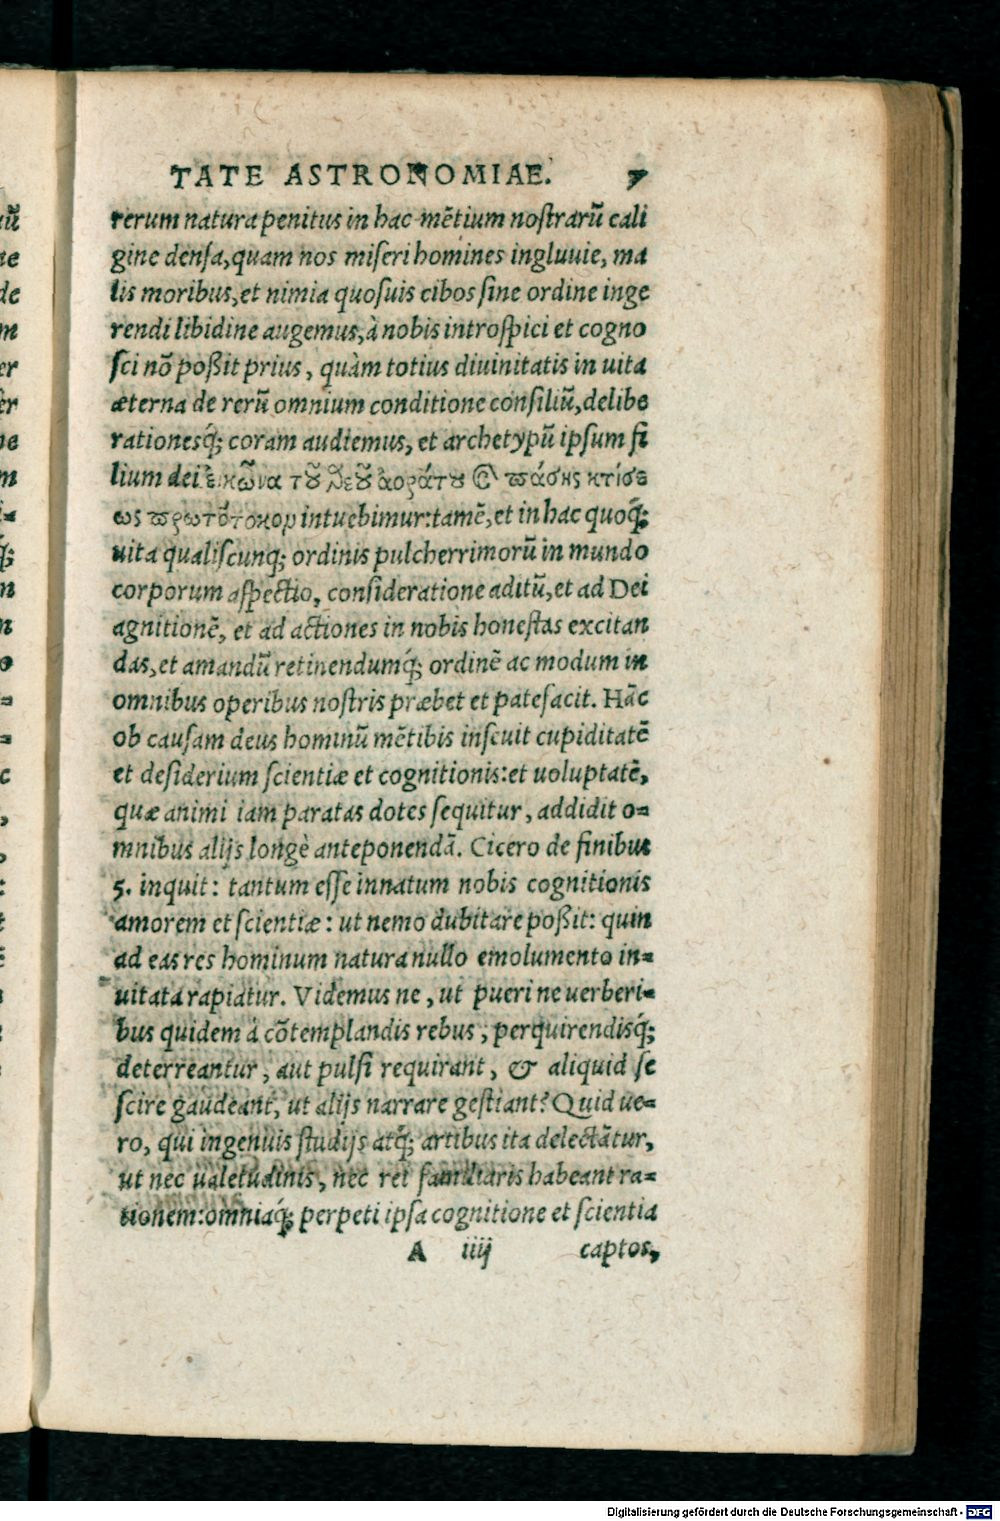 TATE ASTRONOMIAE. 7
rerum natura penitus in hac mētium noſtrarū cali
gine denſa, quam nos miſeri homines ingluuie, ma
lis moribus, et nimia quoſuis cibos ſine ordine inge
rendi libidine augemus, à nobis introſpici et cogno
ſci nō poßit prius, quàm totius diuinitatis in uita
æterna de rerū omnium conditione conſiliū, delibe
rationesq́; coram audiemus, et archetypū ipſum fi
lium dei εἰκῶνα τοῦ θεοῦ ἀοράτου καὶ πάσης κτίσε
ως πρωτότοκον intuebimur: tamē, et in hac quoq́;
uita qualiſcunq; ordinis pulcherrimorū in mundo
corporum aſpectio, conſideratione aditū, et ad Dei
agnitionē, et ad actiones in nobis honeſtas excitan
das, et amandū retinendumq́; ordinē ac modum in
omnibus operibus noſtris præbet et patefacit. Hāc
ob cauſam deus hominū mētibis inſeuit cupiditatē
et deſiderium ſcientiæ et cognitionis: et uoluptatē,
quæ animi iam paratas dotes ſequitur, addidit o=
mnibus alijs longè anteponendā. Cicero de finibus
5. inquit: tantum eſſe innatum nobis cognitionis
amorem et ſcientiæ: ut nemo dubitare poßit: quin
ad eas res hominum natura nullo emolumento in=
uitata rapiatur. Videmus ne, ut pueri ne uerberi=
bus quidem á cōtemplandis rebus, perquirendisq́;
deterreantur, aut pulſi requirant, & aliquid ſe
ſcire gaudeant, ut alijs narrare geſtiant? Quid ue=
ro, qui ingenuis ſtudijs atq́; artibus ita delectātur,
ut nec ualetudinis, nec rei familiaris habeant ra=
tionem: omniaq́; perpeti ipſa cognitione et ſcientia
A iiij captos,
Digitalisierung gefördert durch die Deutsche Forschungsgemeinschaft - DFG